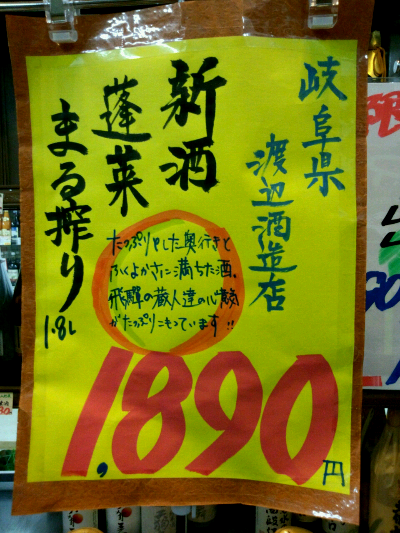 岐阜県
渡辺酒造店
新酒
蓬莱
まる搾り
1.8L
たっぷりとした奥行きと
ふくよかさに満ちた酒。
飛騨の蔵人達の心意気
がたっぷりこもっています!!
1,890円